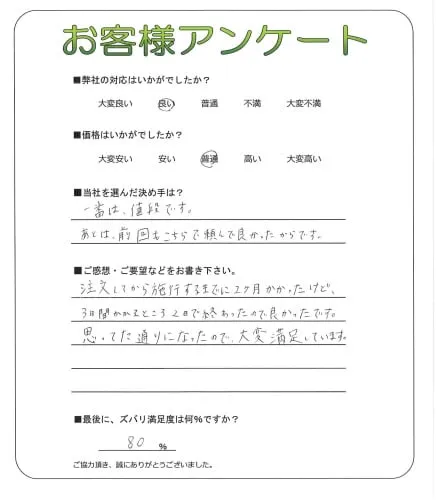 お客様アンケート
■弊社の対応はいかがでしたか？
大変良い 良い 普通 不満 大変不満
■価格はいかがでしたか？
大変安い 安い 普通 高い 大変高い
■当社を選んだ決め手は？
一番は、値段です。
あとは、前回もこちらで頼んで良かったからです。
■ご感想・ご要望などをお書き下さい。
注文してから施行するまでに2ヶ月かかったけど、
3日間かかるところ2日で終わったので良かったです。
思ってた通りになったので、大変満足しています。
■最後に、ズバリ満足度は何％ですか？
80 ％
ご協力頂き、誠にありがとうございました。